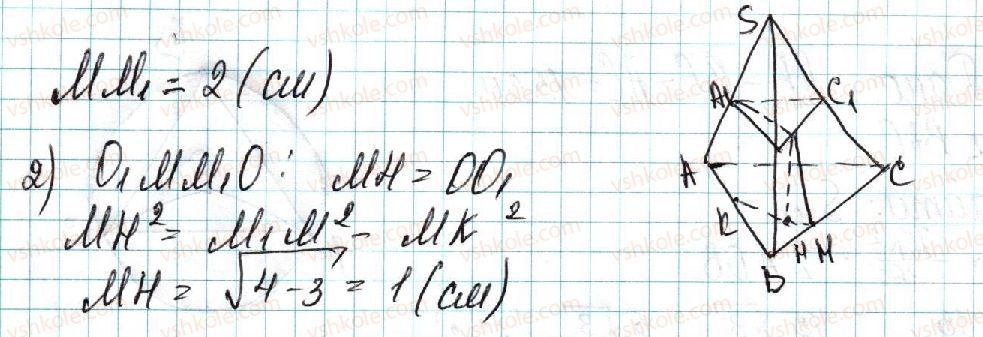 MM₁ = 2 (см)
2) O₁MM₁O : MH = OO₁
MH² = M₁M² - MK²
MH = √4-3 = 1 (см)
S
A₁ C₁
A C
K H M
B